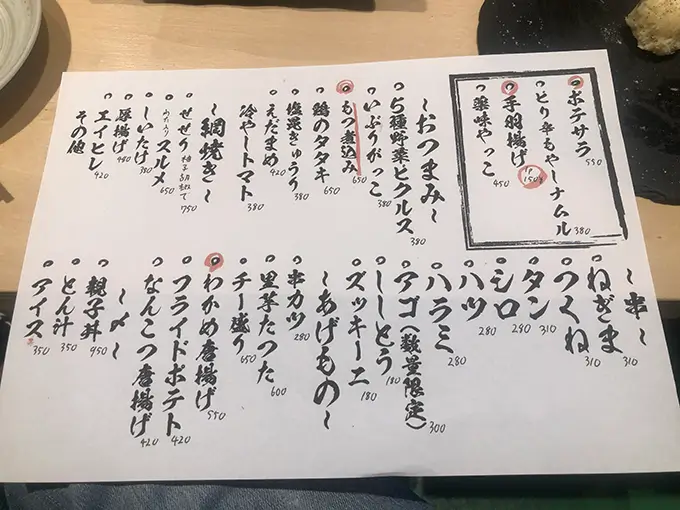 ポテサラ 550
とり辛もやしナムル 380
手羽揚げ 1P 150
薬味やっこ 450
〜おつまみ〜
5種野菜ピクルス 380
いぶりがっこ 380
もつ煮込み 650
鶏のタタキ 650
塩昆きゅうり 380
えだまめ 420
冷やしトマト 380
〜網焼き〜
せせり 柚子胡椒で 750
スルメ 650
しいたけ 380
厚揚げ 480
エイヒレ 420
その他
〜串〜
ねぎま 310
つくね 310
タン 310
シロ 280
ハツ 280
ハラミ 280
アゴ(数量限定) 300
ししとう 180
ズッキーニ 180
〜あげもの〜
串カツ 280
里芋たつた 600
チー盛り 650
わかめ唐揚げ 550
フライドポテト 420
なんこつ唐揚げ 420
〜〆〜
親子丼 950
とん汁 350
アイス 350